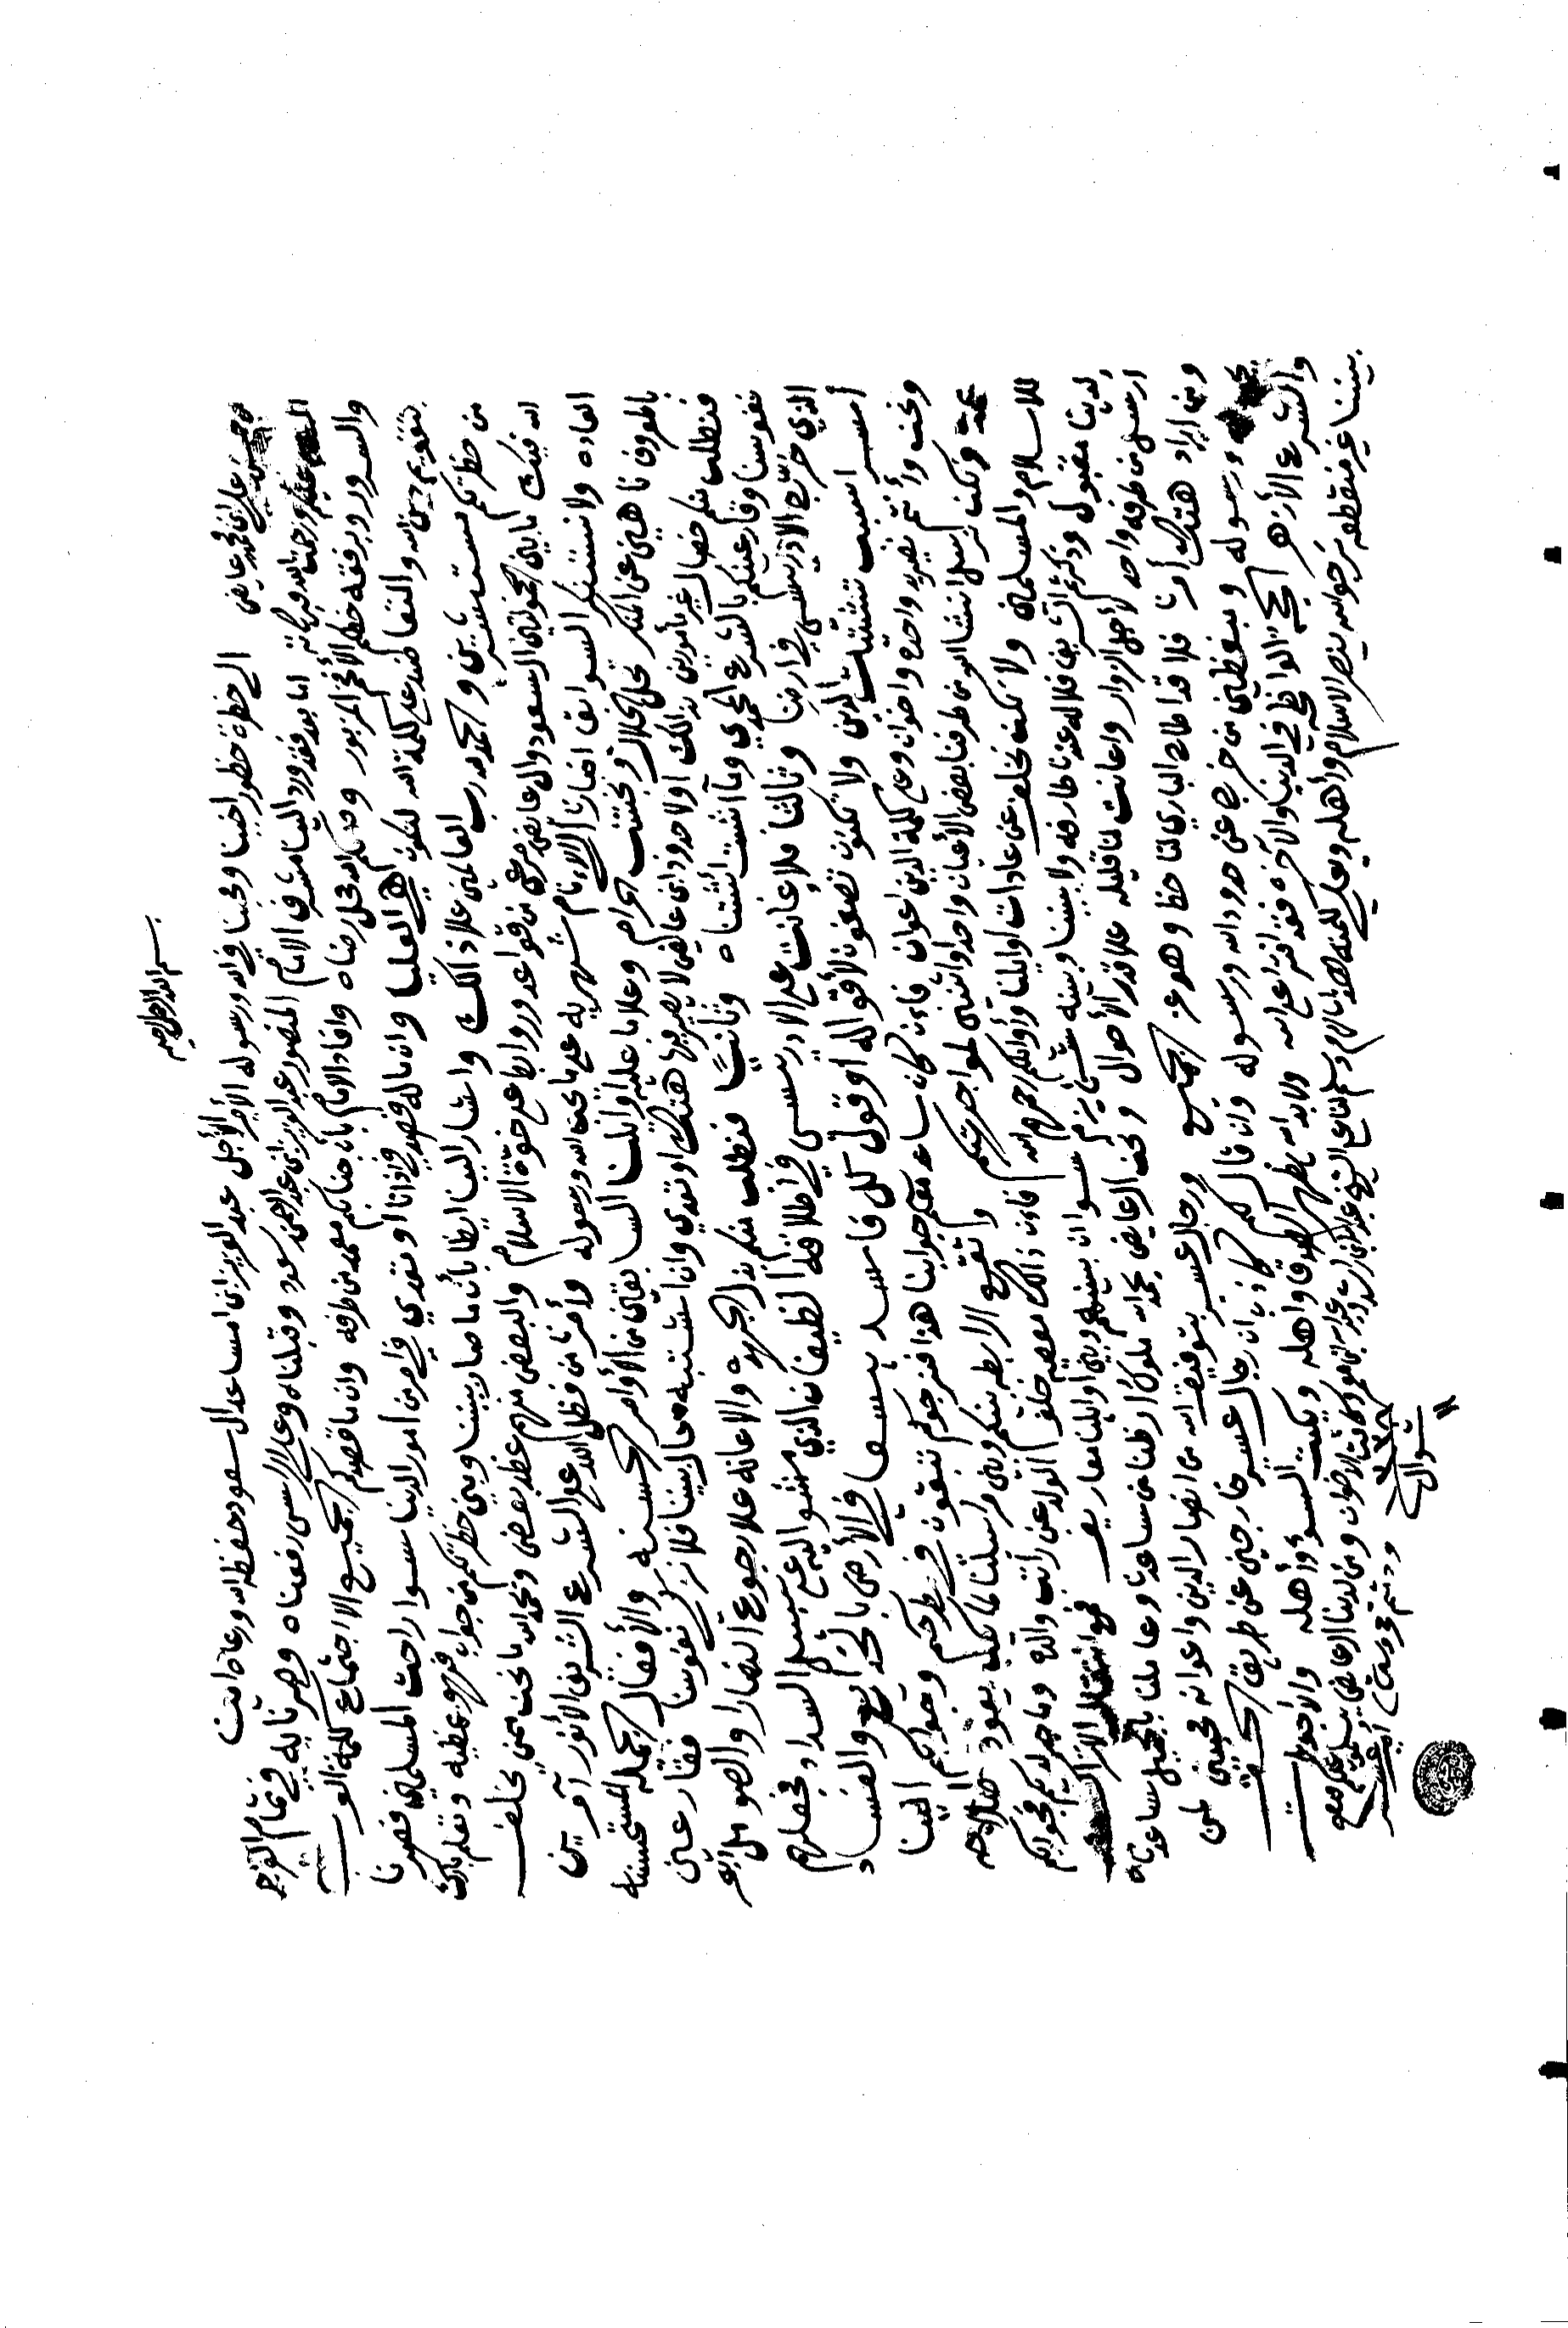 بسم الله الرحمن الرحيم
من حسن بن علي ابن محمد بن عايض الى حظرة حظور اخينا ومحبنا في الله ورسوله الأمير الأجل عبد العزيز ابن امساعد ال سعود حفظه الله ورعاه آمين
السلام عليكم ورحمت الله وبركاته اما بعد فقد ورد الينا مشرف الامام المنصور عبد العزيز ابن عبد الرحمن ال سعود وقبلناه وعلى الرأس رفعناه وصرنا به في تمام الفرح
والسرور وبرفقه خطكم الأفخم المزبور وصلكم الله محل رضاه وافاد الامام بأن جنابكم معمد من طرفه وان ما قصدكم الجميع الا اجتماع كلمة العرب
بتقويم دين الله والتعاضد على كلمة الله لتكون هي العليا وان ماله قصد في اذانا او تعدي في امر من امور الدنيا سوا راحت المسلمين فصرنا
من حظرتكم مستبشرين والحمد لله رب العالمين علا ذالك واشار الينا ايظا بأن ما صار بيننا وبين حظرتكم من جواب فهو يمظيه ونعلم بارك
الله فيك ان ابين الحمولتين ال سعود وال عايض مرعي من قواعد وروابط على خوة الاسلام والبعض منهم عظد بعض ونحمد الله ما نحن ممن يخلف
العاده ولا نستنكر السوابق اخبارنا الاولام شهريه على ما يحب الله ورسوله وأمرنا من فظل الله على الشرع الشريف الأنور آمرين
بالمعروف ناهين عن المنكر نحل الحلال ونجتنب الحرام وعلا ما عليه اوائلنا السابقين من الأوامر الحسنه والأفعال الجمله المستحسنه
فنطلب منكم خصال غير مأمورين بذالك اولا حدود ابن عايض لا يصير فيها هتك او تعدي وان اشتبه حال دينا فلا نزكي نفوسنا فقارعين
نفوسنا وقارعينكم بالشرع المحمدي وما اثبت أثبتناه وثانيًا فنطلب منكم بذل الجهد والاعانه علا رجوع النصارا والصومال
الذي خرّب الادريسي في ارضنا وثالثنا فلا اعانت على الادريسي في اطلاقه الظيفان الذي مشوا اليه على سبيل السداد فجعلهم
أسرا سبب تشتيت الدين ولا تكونون تصغون لأقواله او قول كل فاسد يسعا في الأرض بالخدايع والفساد
ونحن وأنتم نصيره واحده واخوان وعلى كلمة الدين اعوان فان كان ساعدكم جوابنا هذا فنرجوكم تبقون في طرحكم وجوابكم الينا
عمده ونحن نرسل انشا الله من طرفنا بعض الأعيان واحد او اثنين لمواجهتكم واتقع الرابطه بينكم وبين مرسلتنا لما كل يعود صلاحه
للاسلام والمسلمين ولا نحن نخلف عن عادات اوايلنا وأوائلكم رحمهم الله فان ذالك معصيه خلف الولد عن راتب والده وما جا لديكم فجوابكم
لدينا مقبول وذكرتم الشريف فلا له عندنا طارفه ولا بيننا وبينه شي يلزم سوا ان بينهم وبين اوايلنا معاريف فمع انتقال الاتراك
ارسل من طرفه واحد لأجل الزوار واعانت لنا قليله علا قدر الأحوال ونحن ال عايض بحمد الله ملوك ارظنا من ساعدنا وعاملنا بالجميل ساعدناه
ومن اراد هتك أمرنا فلا قد اطاح الباري لنا حظ وهو عز الجميع ورجال عسير بتوفيق الله من انصار الدين واعوانه محبين لمن
يحب الله ورسوله ومبغظين من خرج عن حدود الله ورسوله وان قال لكم كاذب ان رجال عسير خارجين عن طريق الحق
والشرع الأزهر الحجة الواظحه في الدنيا والآخره فقد افترا على الله ولا بد الله يظهر الصدق واهله ويكبت السو وأهله والاخوت
بيننا غير منقطعه نرجو الله ينصر الاسلام وأهله ويعلي كلمته هذا مالزم وسلم لنا على الشيخ عبد الله بن راشد وعبد الله بن معمر وكافة الاخوان ومن لدينا ال عايض يسلمون عليكم مع
ودمتم محروسين أمير عسير
٨ شوال ١٣٣٨